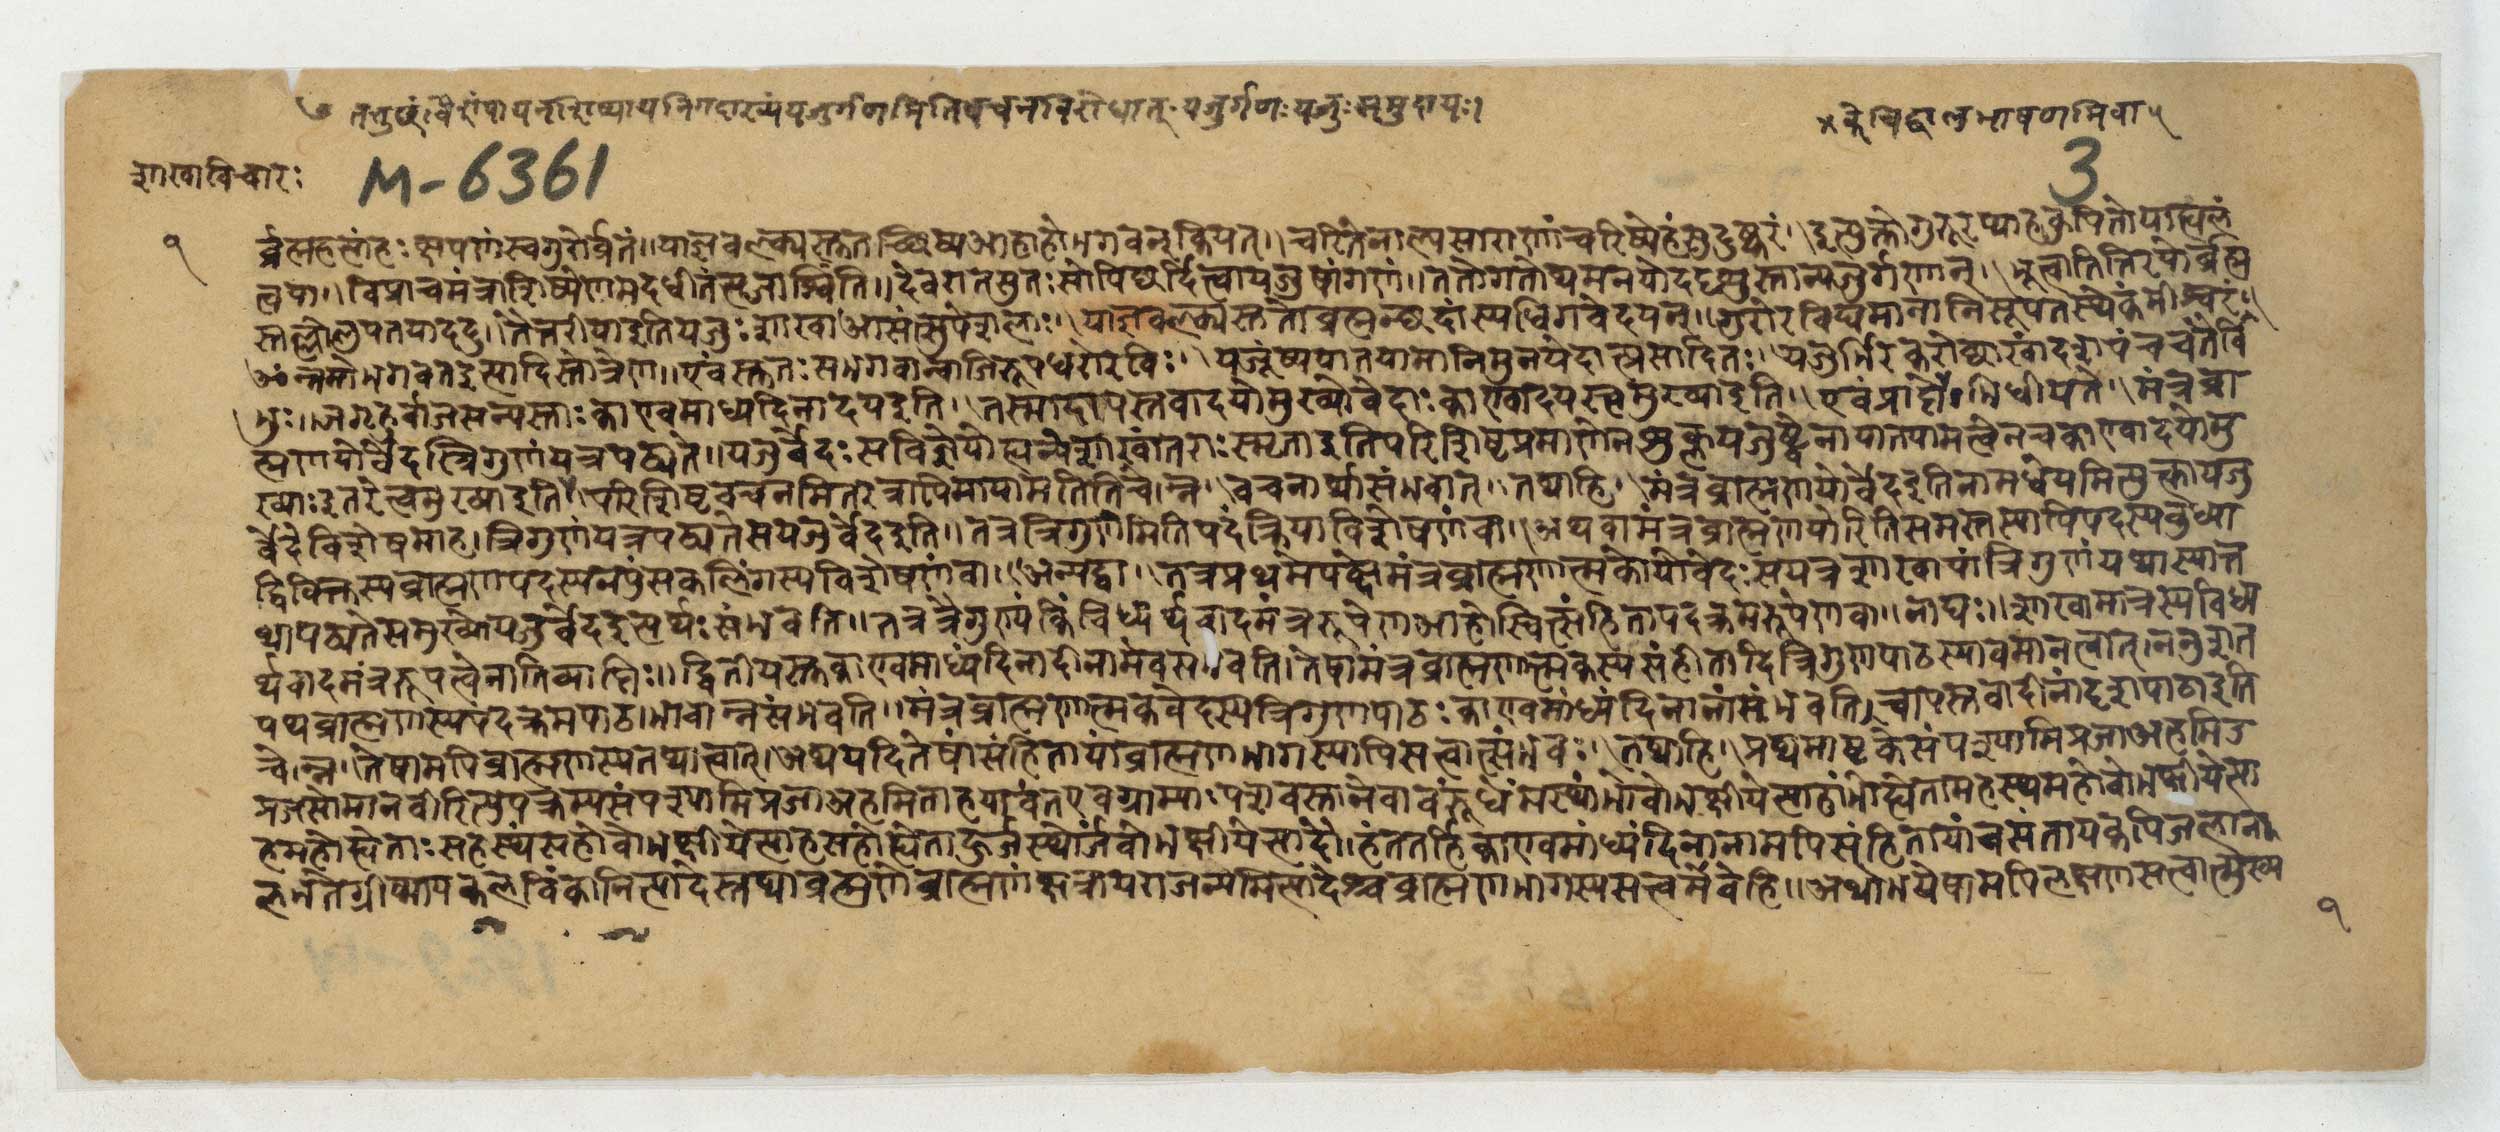 तत्तुछं। वैशंपायनशिष्याय निगदाख्यं यजुर्गणमितिवचनविरोधात् यजुर्गणः यजुः समुदायः।
केचिद्बालभाषणमिवा ५
शाखाविचारः
M-6361
3
१
र्ब्रह्महत्सांहः क्षपणं स्वगुरोर्व्रतं॥ याज्ञवल्क्यस्तु तच्छिष्य आहाहो भगवन् कियत्। चरितेनाल्पसाराणां चरिष्येहं सुदुष्करं। इत्युक्तो गुरुरप्याह कुपितो याह्यलं
त्वया। विप्रावमंत्रा शिष्येण मदधीतं त्यजाश्विति॥ देवरातसुतः सोपि छर्दित्वा यजुषां गणं। ततो गतोथ मुनयो ददृशुस्तान् यजुर्गणान्। भूत्वा तित्तिरयो ब्रह्म
स्तल्लोलुपतयाददुः। तैत्तरीया इति यजुः शाखा आसंत्सुपेशलाः। याज्ञवल्क्यस्ततो ब्रह्मन् छंदांस्यधिगवेषयन्। गुरोरविद्यमानानि सूपतस्थेर्कमीश्वरं।
ॐ नमो भगवत इत्यादिस्तोत्रेण॥ एवं स्तुतः स भगवान् वाजिरूपधरो रविः। यजूंष्ययातयामानि मुनयेदात्प्रसादितः। यजुर्भिरकरोच्छाखा दशपंच शतैर्वि
भुः॥ जगृहुर्वाजसन्यस्ताः काण्वमाध्यंदिनादय इति। तस्मादापस्तंबादयो मुख्यो वेदाः काण्वादयस्त्वमुख्या इति। एवं प्राप्तेभिधीयते। मंत्रब्रा
ह्मणयोर्वेदस्त्रिगुणं यत्र पठ्यते॥ यजुर्वेदः स विज्ञेयोह्यन्ये शाखांतराः स्मृता इति परिशिष्टप्रमाणेन शुक्लयजुष्ट्वेनायातयामत्वेन च काण्वादयो मु
ख्याः इतरेत्वमुख्या इति परिशिष्टवचनमितरत्रापि मायामतितिचेन्न। वचनार्थासंभवात्। तथाहि। मंत्रब्राह्मणयोर्वेद इति नामधेयमित्युक्त्वा यजु
र्वेदे विशेषमाह। त्रिगुणं यत्र पठ्यते स यजुर्वेद इति॥ तत्र त्रिगुणमिति पदं क्रियाविशेषणं वा। अथवा मंत्रब्राह्मणयोरिति समस्तस्यापि पदस्य बुध्या
द्विविक्तस्य ब्राह्मणपदस्य नपुंसकलिंगस्य विशेषणं वा। अन्यद्वा। तत्र प्रथमे पक्षे मंत्रब्राह्मणात्मको यो वेदः स यत्र शाखायां त्रिगुणं यथास्यात्त
था पठ्यते स मुख्यो यजुर्वेद इत्यर्थः संभवति॥ तत्र त्रैगुण्यं किं विध्यर्थवादमंत्ररूपेण आहोस्वित्संहितापदक्रमरूपेण वा॥ नाद्यः॥ शाखामात्रस्य विध्य
र्थवादमंत्ररूपत्वेनातिव्याप्तिः॥ द्वितीयस्तु काण्वमाध्यंदिनादीनामेव संभवति। तेषां मंत्रब्राह्मणात्मकस्य संहितादित्रिगुणपाठस्यावमानत्वात्। ननु शत
पथब्राह्मणस्य पदक्रमपाठाभावान्न संभवति॥ मंत्रब्राह्मणात्मकवेदस्य त्रिगुणपाठः काण्वमाध्यंदिनानां संभवति। चापस्तंबादीनां दृशपाठा इति
चेन्न। तेषामपि ब्राह्मणस्य तथात्वात्। अथ यदि तेषां संहितायां ब्राह्मणभागस्यापि सत्वात्संभवः। तथाहि। प्रथमाष्टके संपश्यामि प्रजा अहमिड
प्रजसो मानवीरित्युपक्रम्य संपश्यामि प्रजा अहमिताह यावंत एव ग्राम्याः पशवस्तानेवावरुंधेंभस्थांभो वो भक्षीयेत्याहांभोह्येता महस्थ महो वो भक्षीयेत्या
ह महोह्येताः सहस्थ सहो वो भक्षीयेत्याह सहोह्येता ऊर्जस्थोर्जं वो भक्षीयेत्यादौ। हंत तर्हि काण्वमाध्यंदिनानामपि संहितायां वसंताय कपिंजलाना
लभते ग्रीष्माय कलविंकानित्यादेस्तथा ब्रह्मणे ब्राह्मणं क्षत्राय राजन्यमित्यादेश्च ब्राह्मणभागस्य सत्वमेवेति॥ अथोभयेषामपि लक्षणसत्वान्मुख्य
१